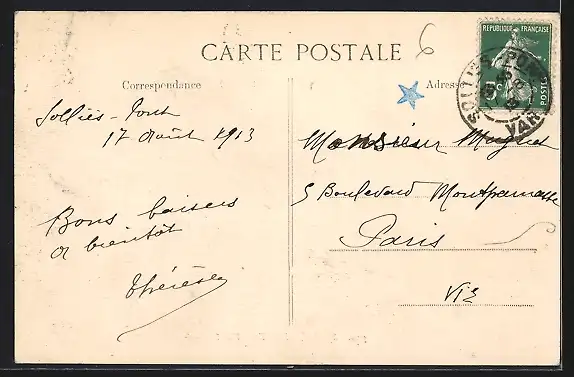 6
CARTE POSTALE
RÉPUBLIQUE FRANÇAISE
POSTES
SOLLIÈS-PONT
VAR
Correspondance
Adresse
Solliès-Pont
17 Août 1913
Bons baisers
à bientôt
Thérèse
Monsieur
5 Boulevard Montparnasse
Paris
VIE